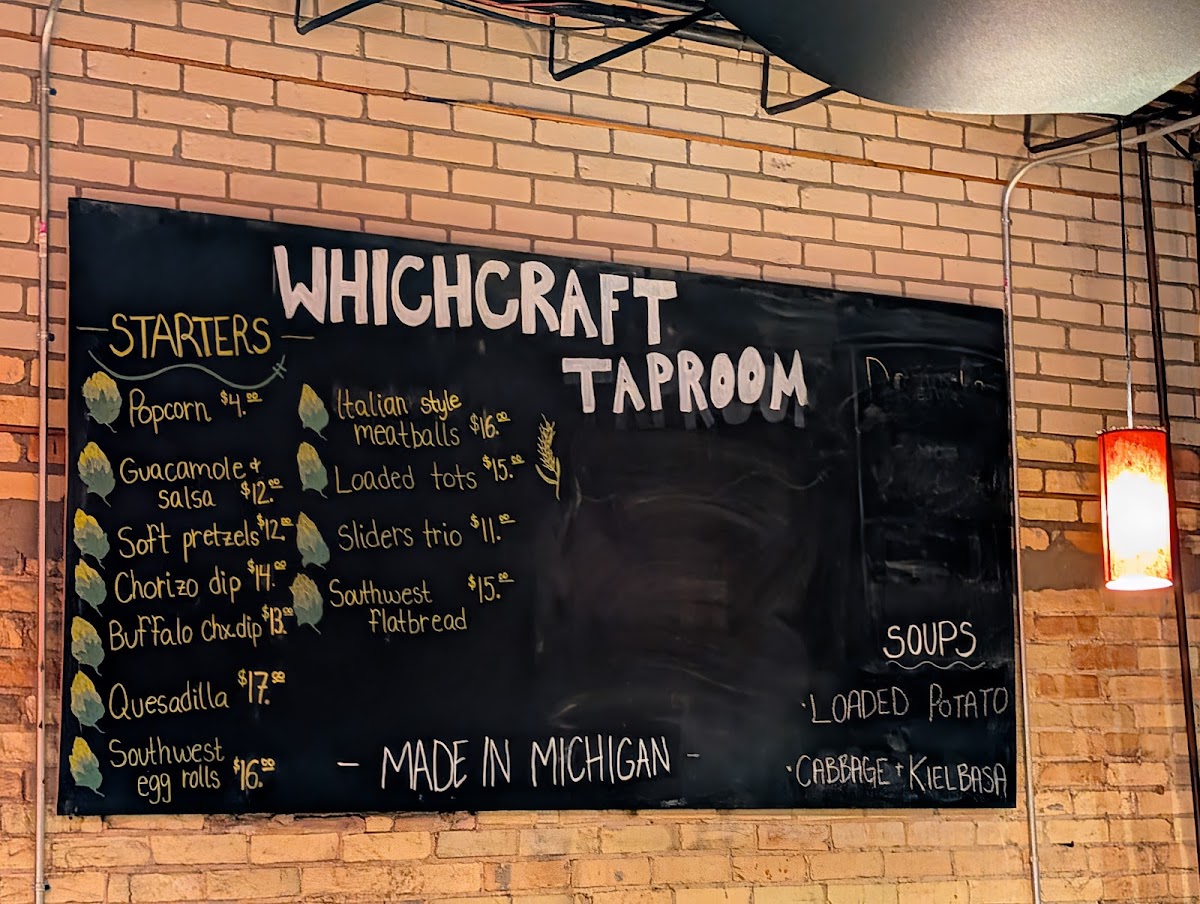 WHICHCRAFT
TAPROOM
STARTERS
Popcorn $4.00
Guacamole +
salsa $12.00
Soft pretzels $12.00
Chorizo dip $14.00
Buffalo chx dip $13.00
Quesadilla $17.00
Southwest
egg rolls $16.00
Italian style
meatballs $16.00
Loaded tots $15.00
Sliders trio $11.00
Southwest $15.00
flatbread
- MADE IN MICHIGAN -
SOUPS
· LOADED POTATO
· CABBAGE + KIELBASA